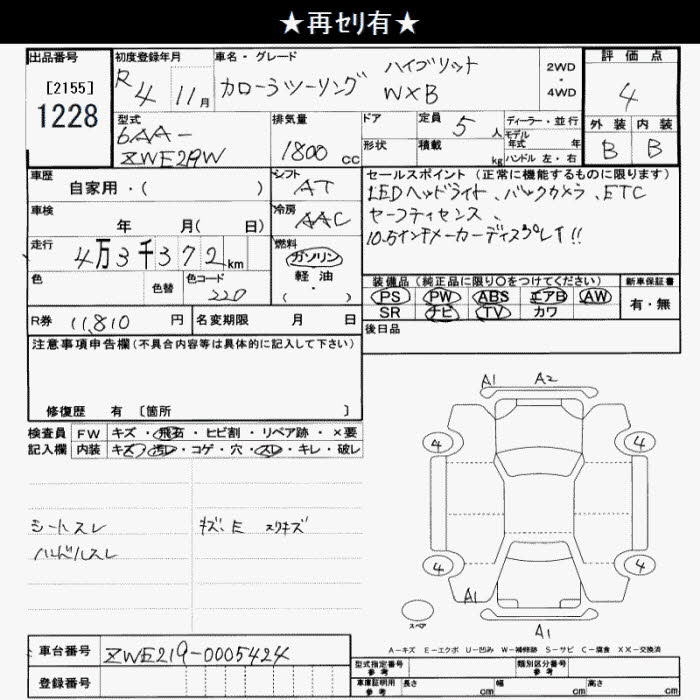 ★再ｾﾘ有★
出品番号
[2155]
1228
初度登録年月
R 4 11月
車名・グレード
カローラツーリング ハイブリット
W×B
2WD
・
4WD
評価点
4
外装 内装
B B
型式
6AA-
ZWE219W
排気量
1800 cc
ドア
形状
定員 5 人
積載 kg
ディーラー・並行
モデル年式 年
ハンドル 左・右
車歴
自家用・( )
車検
年 月( 日)
走行
4万3千372km
色
色替
色コード
220
シフト
AT
冷房
AAC
燃料
ガソリン
軽油
・
( )
セールスポイント(正常に機能するものに限ります)
LEDヘッドライト、バックカメラ、ETC
セーフティセンス、
10.5インチメーカーディスプレイ!!
装備品(純正品に限り○をつけてください)
PS PW ABS エアB AW
SR ナビ TV カワ
新車保証書
有・無
後日品
R券 11,810 円
名変期限 月 日
注意事項申告欄(不具合内容等は具体的に記入して下さい)
修復歴 有 〔箇所 〕
検査員 FW キズ・飛石・ヒビ割・リペア跡・×要
記入欄 内装 キズ・汚レ・コゲ・穴・スレ・キレ・破レ
シートスレ
ハンドルスレ
キズ、E スリキズ
A1 A2
4 4
4 4
A1
A1
スペア
A-キズ E-エクボ U-凹み W-補修跡 S-サビ C-腐食 XX-交換済
車台番号 ZWE219-0005424
登録番号
型式指定番号 参考
類別区分番号 参考
車庫証明用 参考 長さ cm 幅 cm 高さ cm